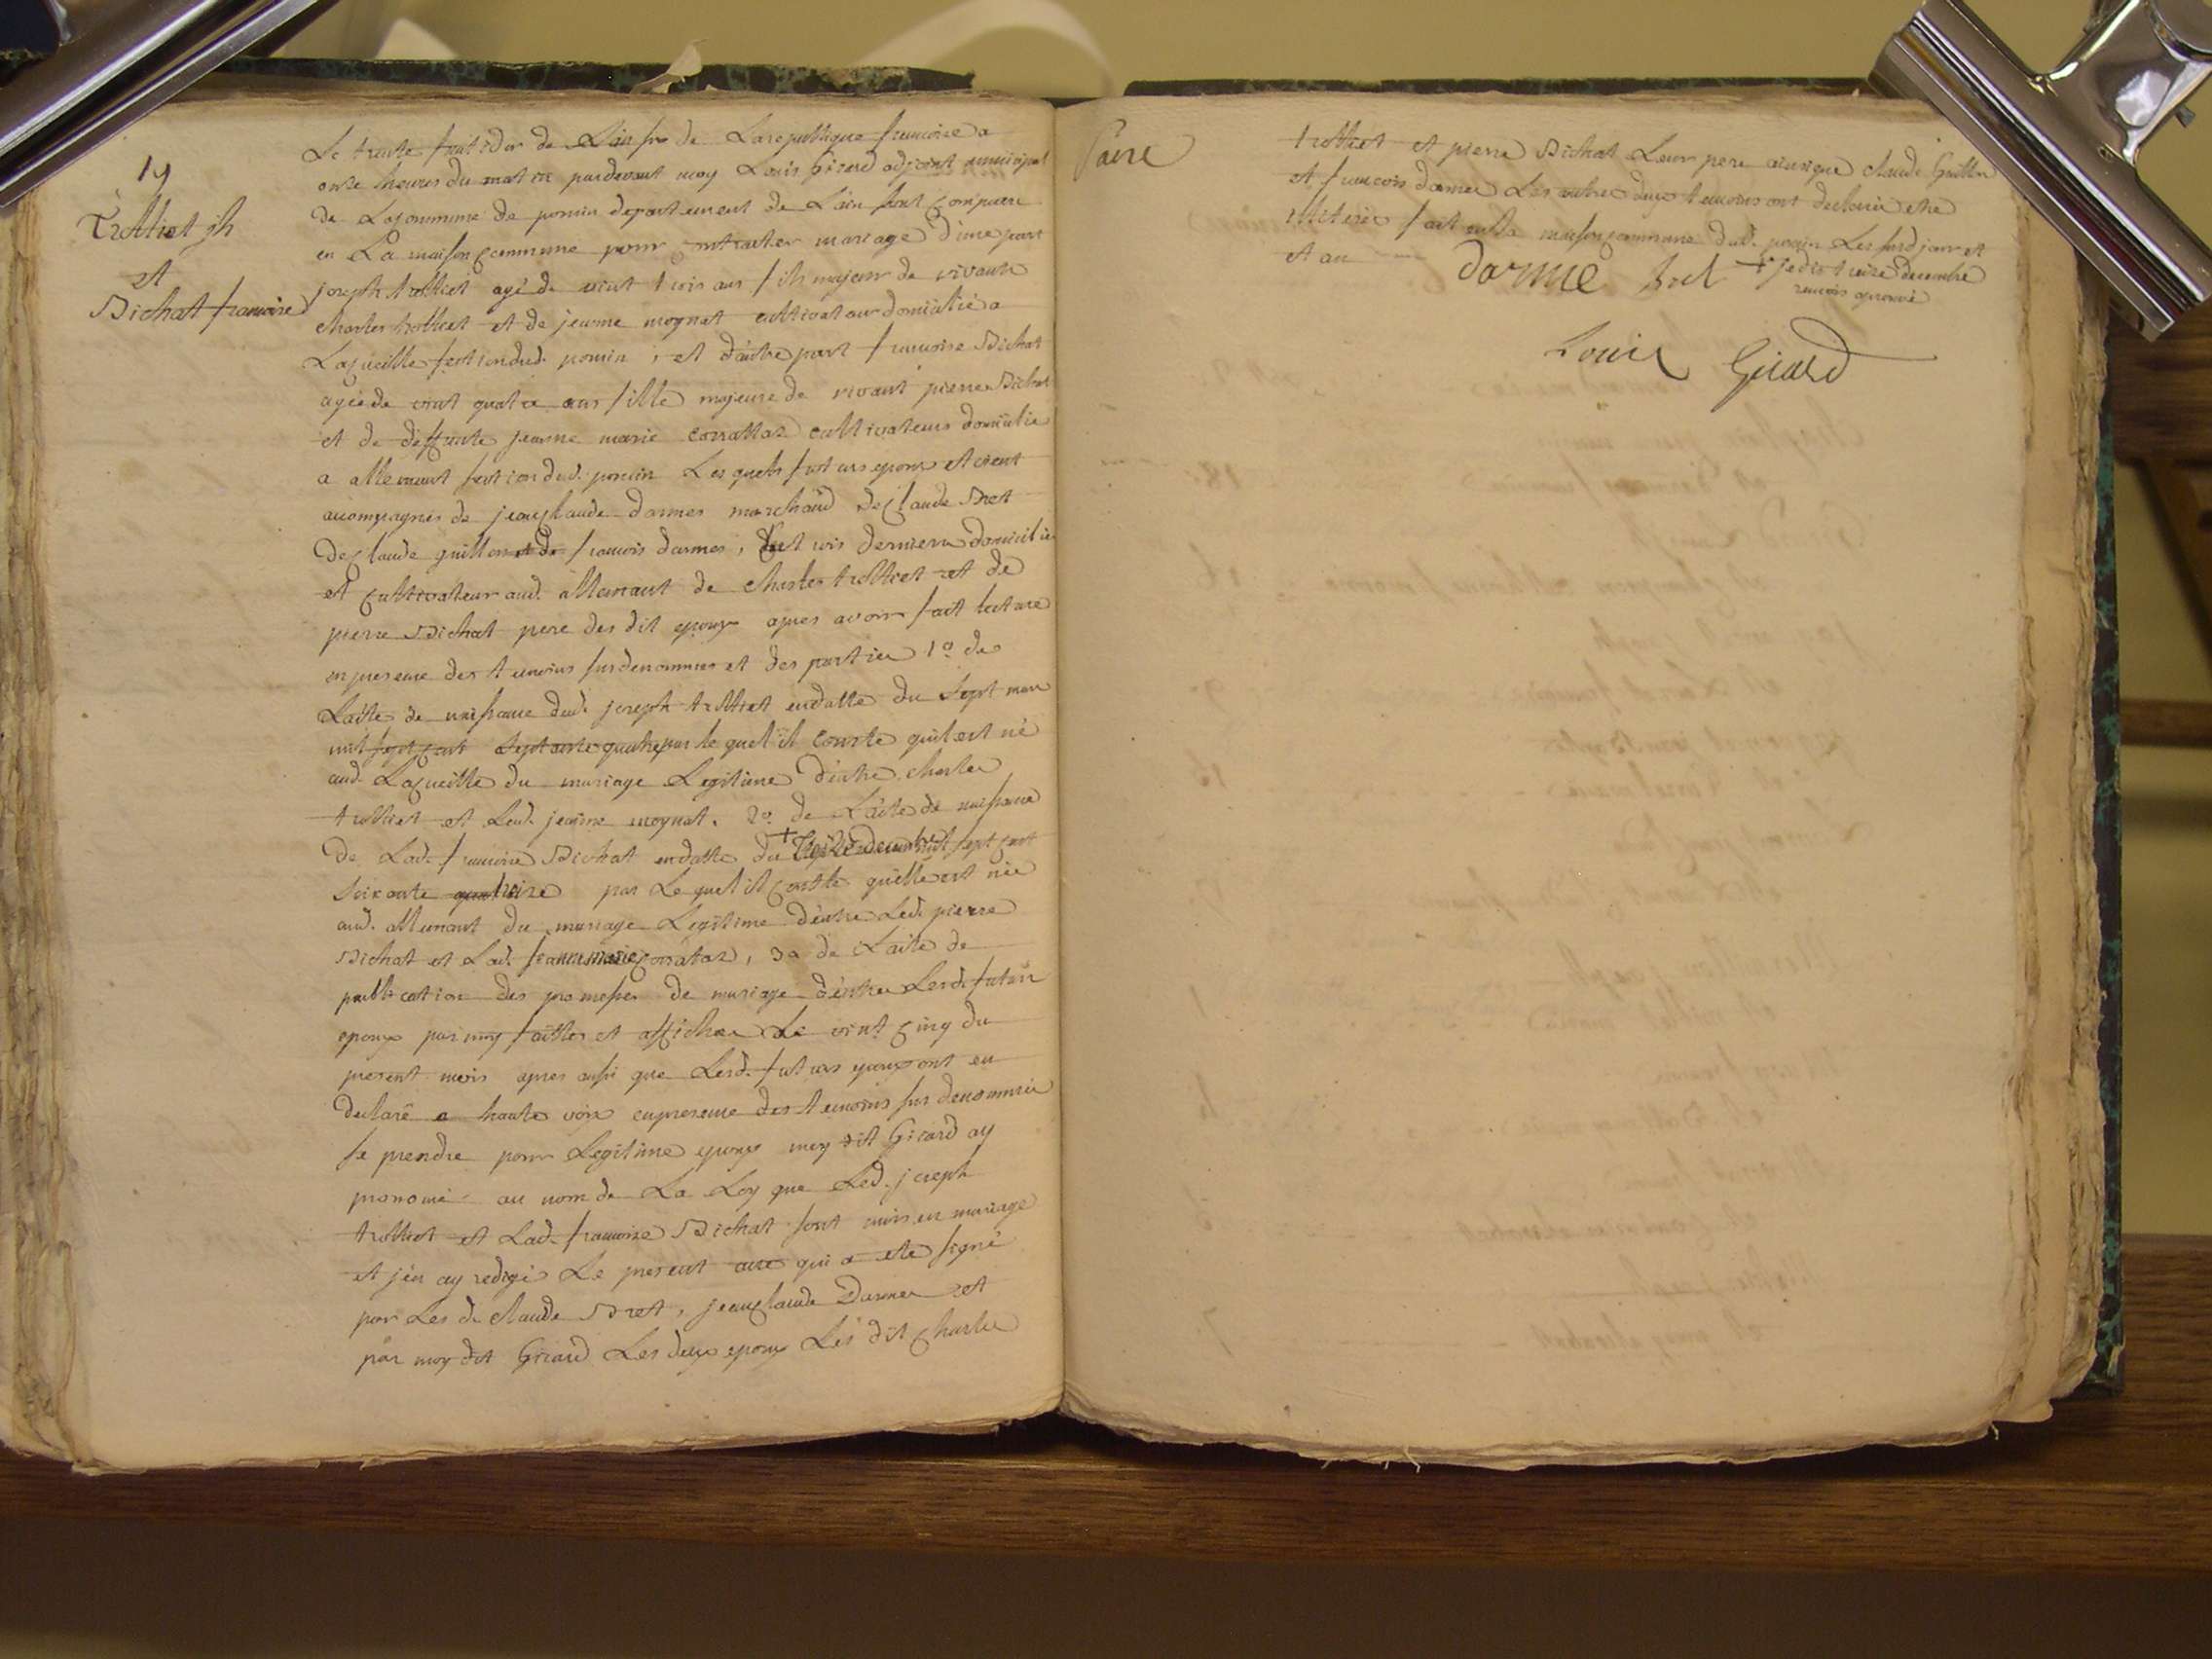 19
Trolliet jh
et
Bichat francoise
Le trente fruitidor de Lan six de Larepublique francoise a
onze heures du matin pardevant moy Louis Girard adjoint municipal
de Lacommune de poncin departement de Lain sont comparu
en La maison commune pour contracter mariage d'une part
joseph trolliet agé de vint trois ans fils majeur de vivants
charles trolliet et de jeanne moynat cultivateur domicilié a
Lacueille section dud. poncin ; et d'autre part francoise Bichat
agée de vint quatre ans fille majeure de vivant pierre Bichat
et de deffunte jeanne marie corrattaz cultivateurs domicilié
a allemant section dud. poncin Les quels futurs epoux etoient
acompagnés de jeanclaude darmes marchand de Claude Bret
de Claude guillon et de francois darmes, trois derniers domicilié
et cultivateur aud. allemant de charles trolliet et de
pierre Bichat pere des dit epoux apres avoir fait lecture
en presence des temoins susdenommes et des parties 1º de
Lacte de naissance dud. joseph trolliet endatte du sept mars
mil sept cent septante quatre par le quel il conste quil est né
aud. Lacueille du mariage Legitime d'entre charles
trolliet et Lad. jeanne moynat. 2º de Lacte de naissance
de Lad. francoise Bichat endatte du + treize decembre mil sept cent
soixante treize par Le quel il conste quelle est née
aud. allemant du mariage Legitime d'entre Led. pierre
Bichat et Lad. jeanne marie corrataz, 3º de Lacte de
publication des promesses de mariage d'entre Lesd. futurs
epoux par moy faittes et affichee Le vint cinq du
present mois apres aussi que Lesd. futurs epoux ont eu
declaré a haute voix en presence des temoins sus denommés
se prendre pour Legitime epoux moy dit Girard ay
prononcé au nom de La Loy que Led. joseph
trolliet et Lad. francoise Bichat sont unis en mariage
et j'en ay redigé Le present acte qui a ete signé
par Les d. claude Bret, jeanclaude Darmes et
par moy dit Girard Les deux epoux Les dit Charles
Paire
trolliet et pierre Bichat Leur pere ainsi que claude Guillon
et francois darmes Les autres deux temoins ont declaré etre
illiterés fait en La maison commune dud. poncin Les susd jour et
et an
Darme Bret + je dis treize decembre
renvois aprouvé
Louis Girard